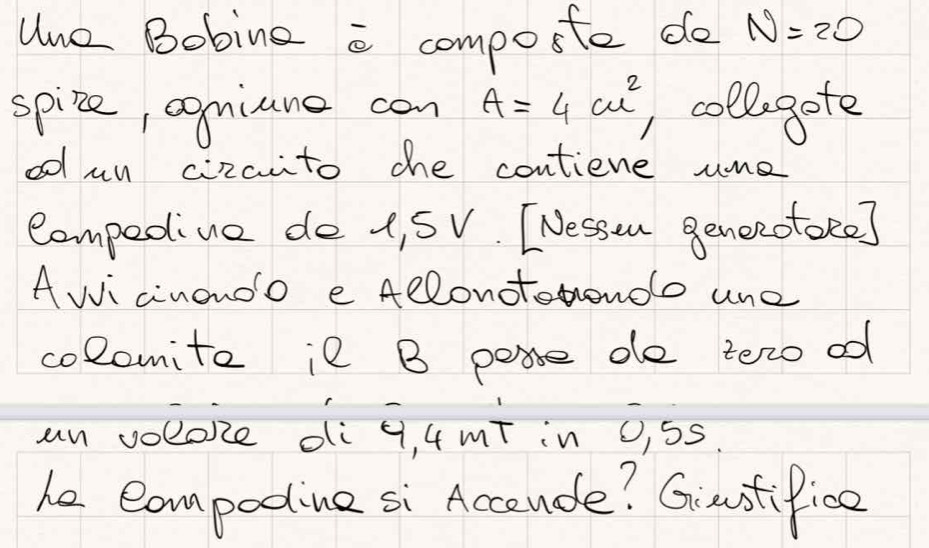 Una Bobina è composta da N=20
spire, ogniuna con A = 4 cm², collegate
ad un circuito che contiene una
lampadina da 1,5V. [Nessun generatore]
Avvicinando e Allontanando una
calamita il B passa da zero ad
un valore di 9,4 mT in 0,5s.
La lampadina si Accende? Giustifica